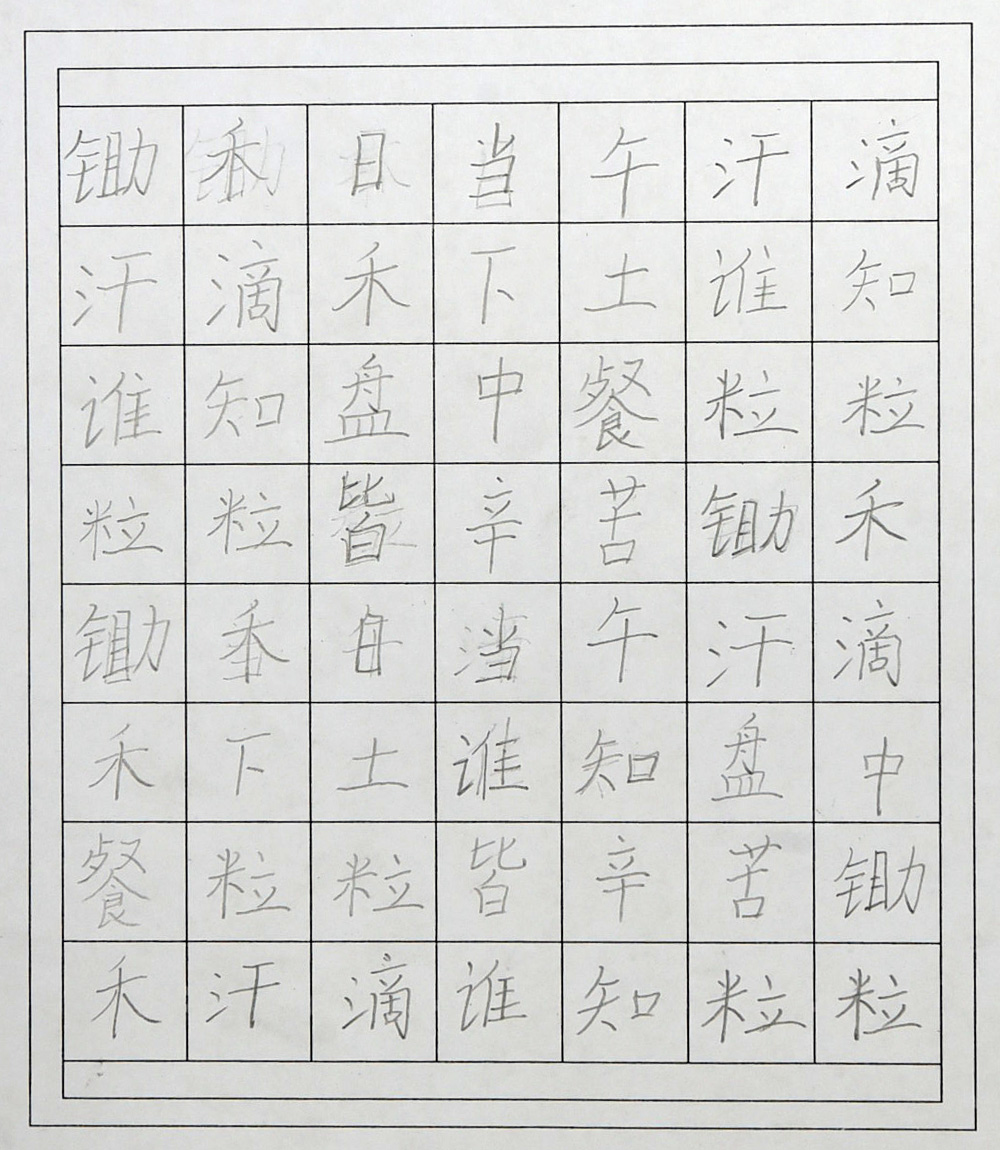 锄禾日当午汗滴
汗滴禾下土谁知
谁知盘中餐粒粒
粒粒皆辛苦锄禾
锄禾日当午汗滴
禾下土谁知盘中
餐粒粒皆辛苦锄
禾汗滴谁知粒粒